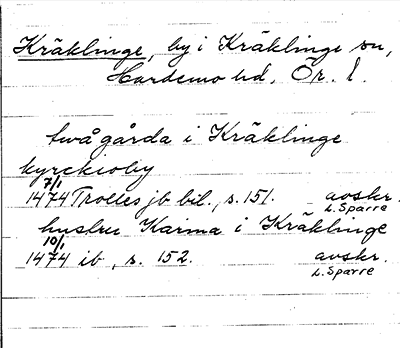 Kräklinge, by i Kräklinge sn,
Hardemo hd, Ör. l.
twå gårda i Kräklinge
kyrckioby
7/1
1474 Trolles jb bil., s. 151. avskr.
L. Sparre
hustru Karina i Kräklinge
10/1
1474 ib, s. 152. avskr.
L. Sparre